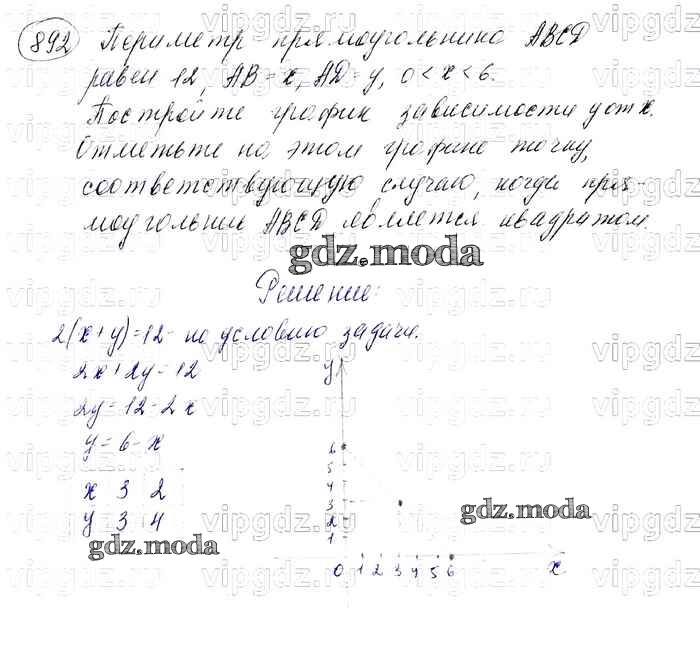 892 Периметр прямоугольника ABCD
равен 12, AB = x, AD = y, 0 < x < 6.
Постройте график зависимости y от x.
Отметьте на этом графике точку,
соответствующую случаю, когда пря-
моугольник ABCD является квадратом.
gdz.moda
Решение:
2(x+y)=12 - по условию задачи.
2x+2y=12
2y=12-2x
y=6-x
x 3 2
y 3 4
gdz.moda
y
6
5
4
3
2
1
0 1 2 3 4 5 6 x
gdz.moda
vipgdz